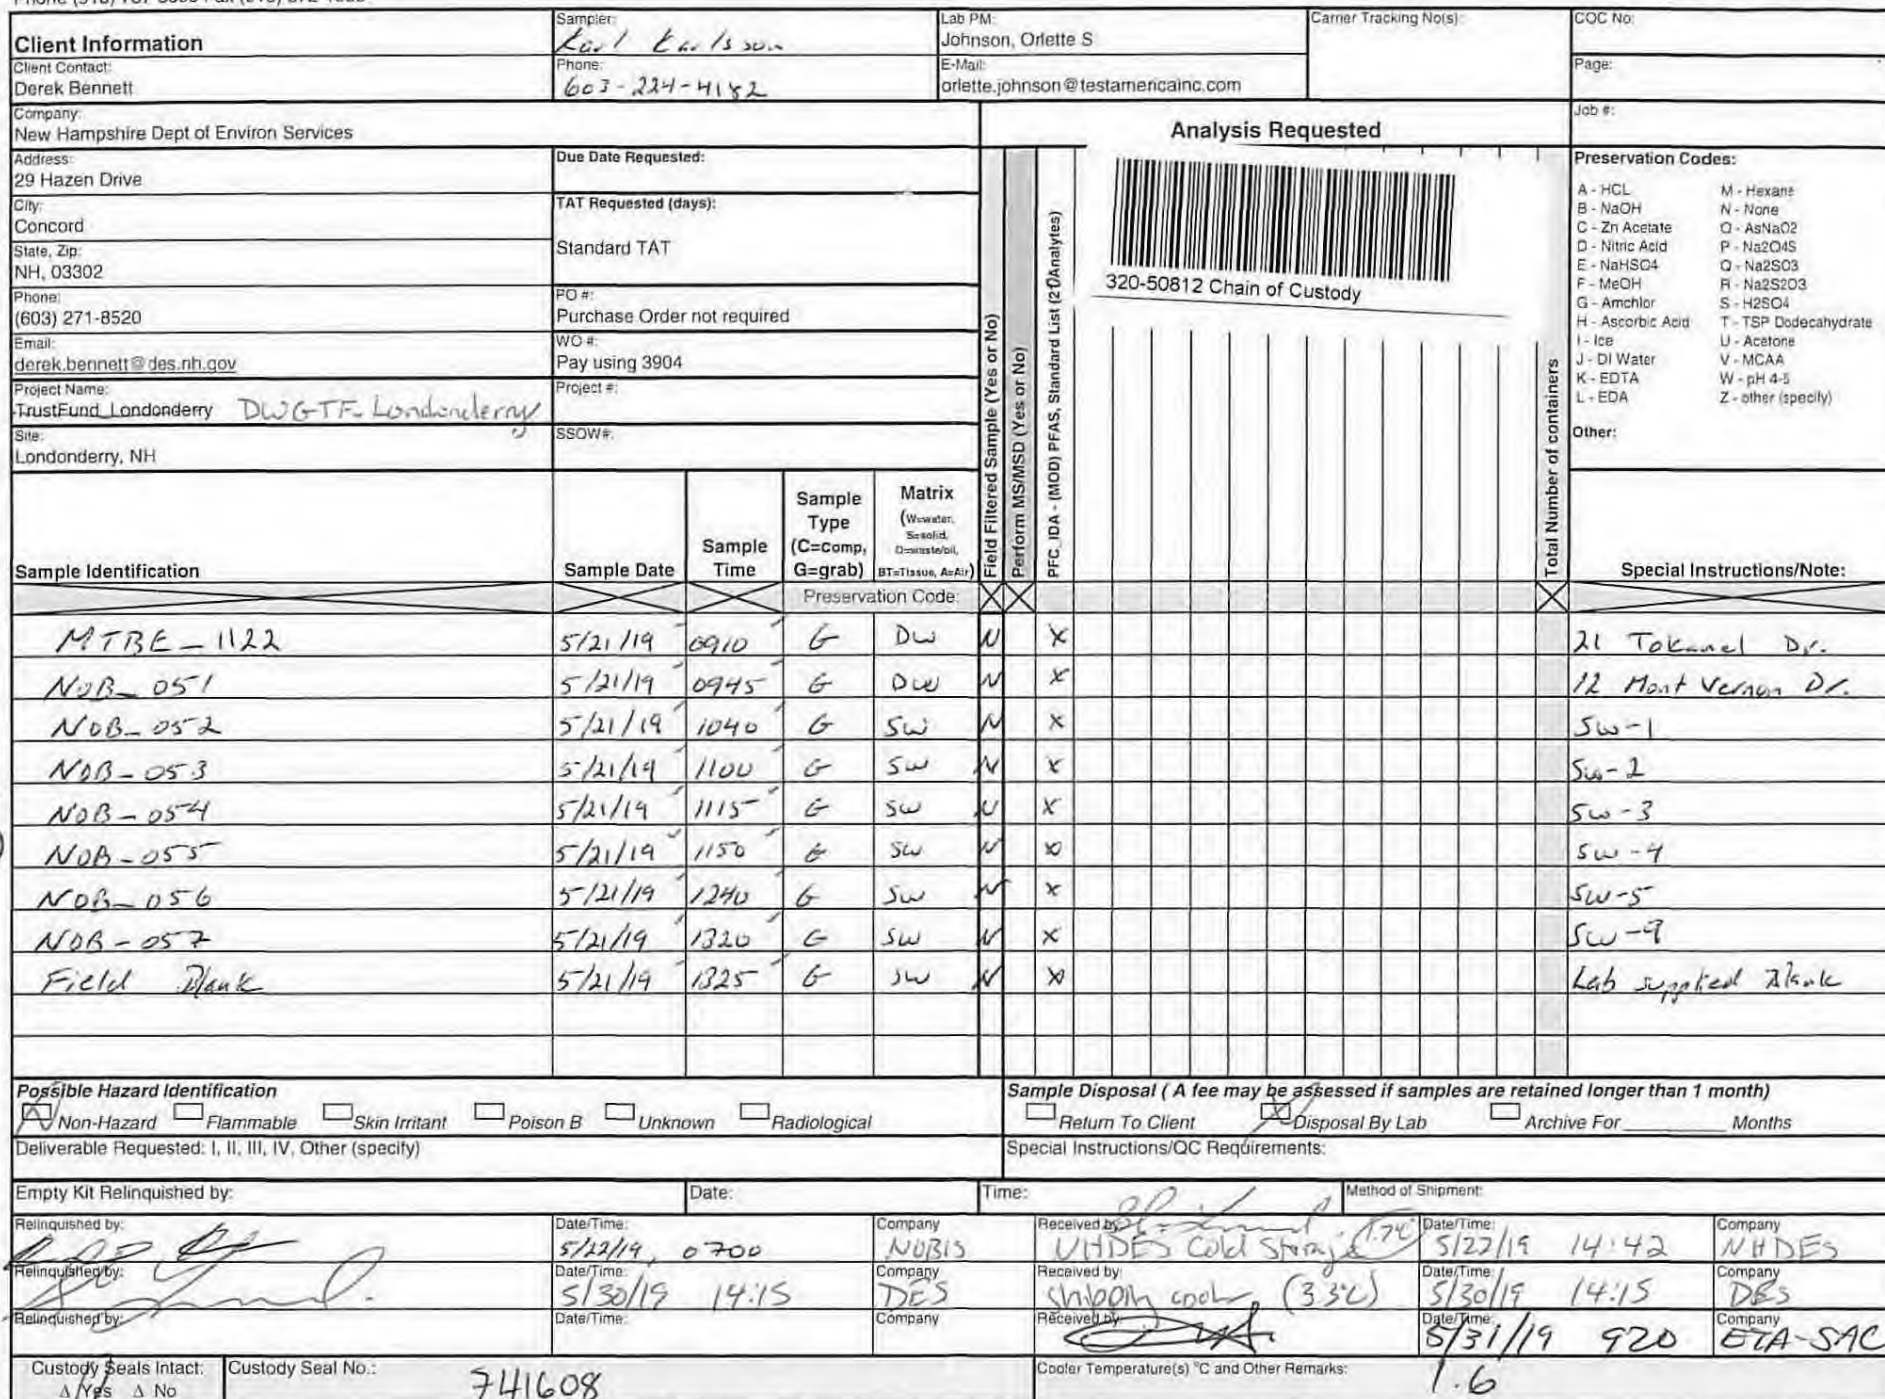 Client Information
Sampler:
Karl Karlsson
Lab PM:
Johnson, Orlette S
Carrier Tracking No(s):
COC No:
Client Contact:
Derek Bennett
Phone:
603-224-4182
E-Mail:
orlette.johnson@testamericainc.com
Page:
Company:
New Hampshire Dept of Environ Services
Analysis Requested
Job #:
Address:
29 Hazen Drive
Due Date Requested:
City:
Concord
TAT Requested (days):
Standard TAT
State, Zip:
NH, 03302
Phone:
(603) 271-8520
PO #:
Purchase Order not required
Email:
derek.bennett@des.nh.gov
WO #:
Pay using 3904
Project Name:
TrustFund_Londonderry DWGTF-Londonderry
Project #:
Site:
Londonderry, NH
SSOW#:
Field Filtered Sample (Yes or No)
Perform MS/MSD (Yes or No)
PFC_IDA - (MOD) PFAS, Standard List (20 Analytes)
320-50812 Chain of Custody
Total Number of containers
Preservation Codes:
A - HCL M - Hexane
B - NaOH N - None
C - Zn Acetate O - AsNaO2
D - Nitric Acid P - Na2O4S
E - NaHSO4 Q - Na2SO3
F - MeOH R - Na2S2O3
G - Amchlor S - H2SO4
H - Ascorbic Acid T - TSP Dodecahydrate
I - Ice U - Acetone
J - DI Water V - MCAA
K - EDTA W - pH 4-5
L - EDA Z - other (specify)
Other:
Sample Identification
Sample Date
Sample Time
Sample Type (C=comp, G=grab)
Matrix (W=water, S=solid, O=waste/oil, BT=Tissue, A=Air)
Special Instructions/Note:
Preservation Code:
MTBE-1122 5/21/19 0910 G DW N X 21 Tokanel Dr.
NOB-051 5/21/19 0945 G DW N X 12 Mont Vernon Dr.
NOB-052 5/21/19 1040 G SW N X SW-1
NOB-053 5/21/19 1100 G SW N X SW-2
NOB-054 5/21/19 1115 G SW N X SW-3
NOB-055 5/21/19 1150 G SW N X SW-4
NOB-056 5/21/19 1240 G SW N X SW-5
NOB-057 5/21/19 1320 G SW N X SW-9
Field Blank 5/21/19 1325 G SW N X Lab supplied Blank
Possible Hazard Identification
Non-Hazard Flammable Skin Irritant Poison B Unknown Radiological
Sample Disposal ( A fee may be assessed if samples are retained longer than 1 month)
Return To Client Disposal By Lab Archive For Months
Deliverable Requested: I, II, III, IV, Other (specify)
Special Instructions/QC Requirements:
Empty Kit Relinquished by:
Date:
Time:
Method of Shipment:
Relinquished by:
Date/Time:
5/22/19, 0700
Company
NOBIS
Received by:
NHDES Cold Storage 1.7°C
Date/Time:
5/22/19 14:42
Company
NHDES
Relinquished by:
Date/Time:
5/30/19 14:15
Company
DES
Received by:
shipping cooler (3.3°C)
Date/Time:
5/30/19 14:15
Company
DES
Relinquished by:
Date/Time:
Company
Received by:
Date/Time:
5/31/19 920
Company
ETA-SAC
Custody Seals Intact:
Δ Yes Δ No
Custody Seal No.:
741608
Cooler Temperature(s) °C and Other Remarks:
1.6